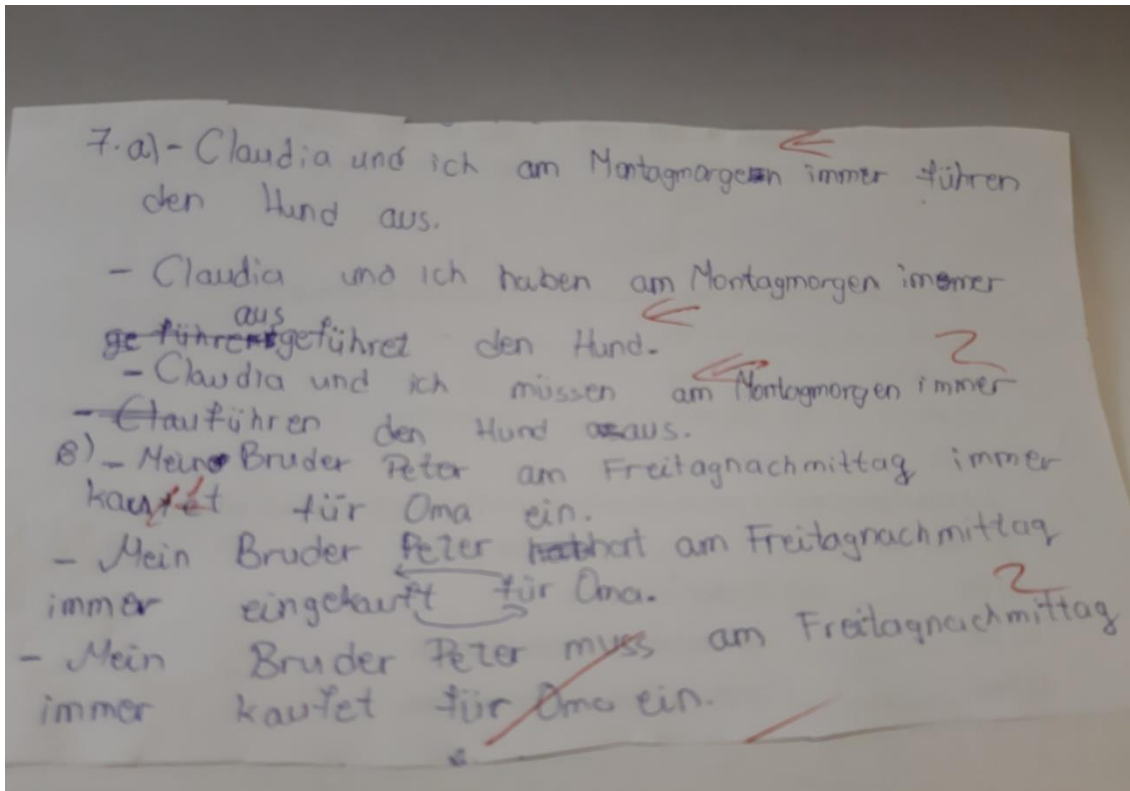 7.a) - Claudia und ich am Montagmorgen immer führen
den Hund aus.
- Claudia und ich haben am Montagmorgen immer
ausgeführet den Hund.
- Claudia und ich müssen am Montagmorgen immer
führen den Hund aus.
B) - Mein Bruder Peter am Freitagnachmittag immer
kaufet für Oma ein.
- Mein Bruder Peter hat am Freitagnachmittag
immer eingekauft für Oma.
- Mein Bruder Peter muss am Freitagnachmittag
immer kaufet für Oma ein.